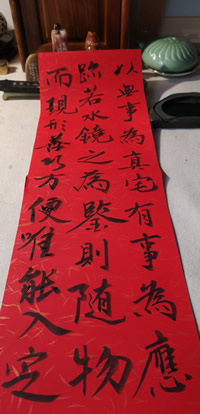 以無事為真宅有事為應
跡若水鏡之為鑒則隨物
而現形善巧方便唯能入定